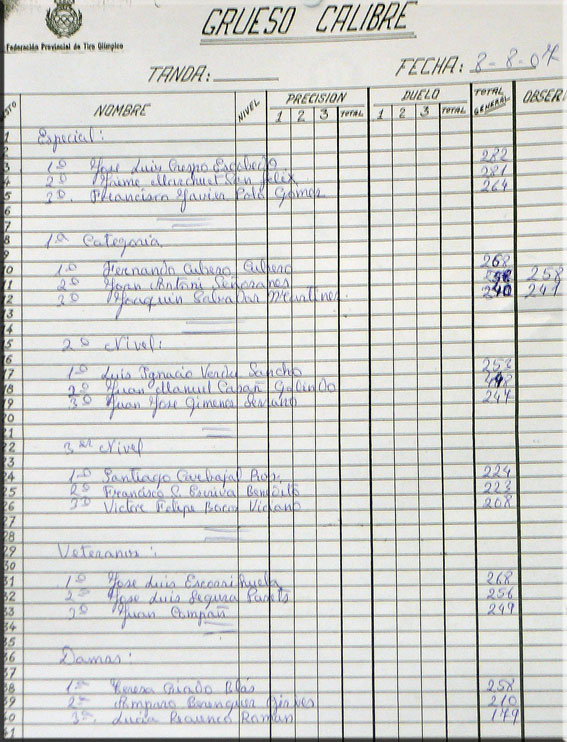 GRUESO CALIBRE
Federación Provincial de Tiro Olímpico
TANDA: FECHA: 8-8-07
NOMBRE NIVEL PRECISION DUELO TOTAL GENERAL OBSER
1 2 3 TOTAL 1 2 3 TOTAL
1 Especial:
2
3 1º Jose Luis Crespo Escobedo 282
4 2º Jaime Marchuet San felix 281
5 3º. Francisco Javier Polo Gomez 264
6
7
8 1ª Categoria
9
10 1º Fernando Cubero Cubero 268
11 2º Joan Antoni Señosanes 258 258
12 3º Joaquin Salvador Martinez. 240 241
13
14
15 2º Nivel:
16
17 1º Luis Ignacio Verdu Sancho 252
18 2º Juan Manuel Casañ Galindo
19 3º Juan Jose Gimenez Serrano 244
20
21
22 3er Nivel
23
24 1º Santiago Carbajal Ros. 224
25 2º Francisco S. Escriva Benedito 223
26 3º Victor Felipe Viciano 208
27
28
29 Veteranos:
30
31 1º Jose Luis Escorihuela 268
32 2º Jose Luis Segura 256
33 3º Juan Compañ 249
34
35
36 Damas:
37
38 1ª Teresa Criado Blas 258
39 2ª Amparo Berenguer 210
40 3ª Lucia Roman 179
41